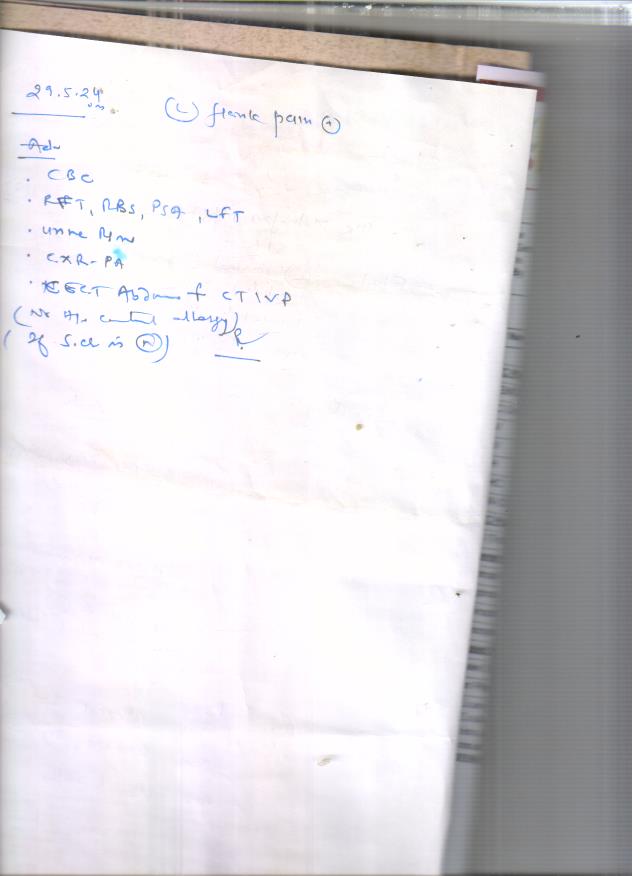 29.5.24
(L) flank pain (+)
Adv
. CBC
. RFT, RBS, PSA, LFT
. Urine R/M
. CXR-PA
. CECT Abdomen + CT IVP
(No H/o contrast allergy)
(If S.Cr is (N))